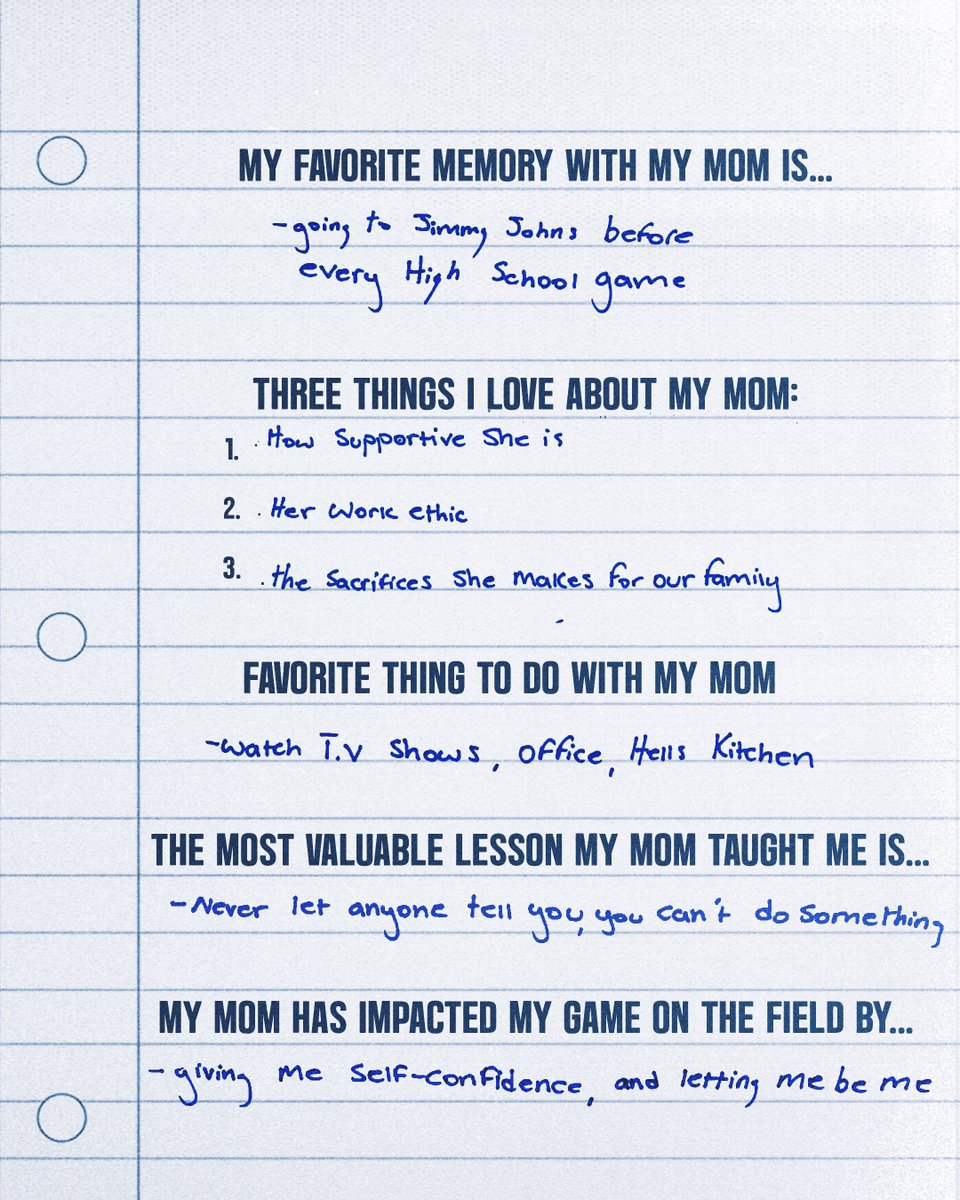 MY FAVORITE MEMORY WITH MY MOM IS...
-going to Jimmy Johns before
every High School game
THREE THINGS I LOVE ABOUT MY MOM:
1. How Supportive She is
2. Her work ethic
3. the Sacrifices She makes for our family
FAVORITE THING TO DO WITH MY MOM
-watch T.V Shows, Office, Hells Kitchen
THE MOST VALUABLE LESSON MY MOM TAUGHT ME IS...
-Never let anyone tell you, you can't do Something
MY MOM HAS IMPACTED MY GAME ON THE FIELD BY...
-giving me Self-confidence, and letting me be me